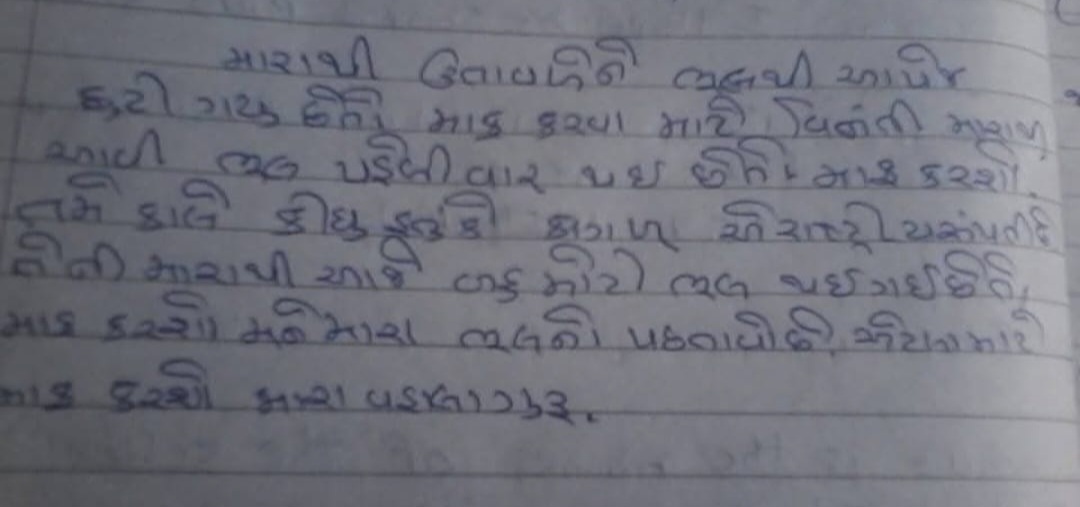 મારાથી ઉતાવળેને ભુલથી આપેજ
છુટી ગયુ છેતો માફ કરવા માટે વિનંતી મારાથી
આવી ભુલ પહેલીવાર થઇ છેતો માફ કરશો.
તમે કાલે કીધુ હતુકે કાગળ એ રાષ્ટ્રીયસંપતીછે
તેની મારાથી આજે બહુ મોટી ભુલ થઇગઇછેતો
માફ કરશો મને મારા ભુલનો પછતાવોછે એટલામાટે
માફ કરશો મારા વડીલ